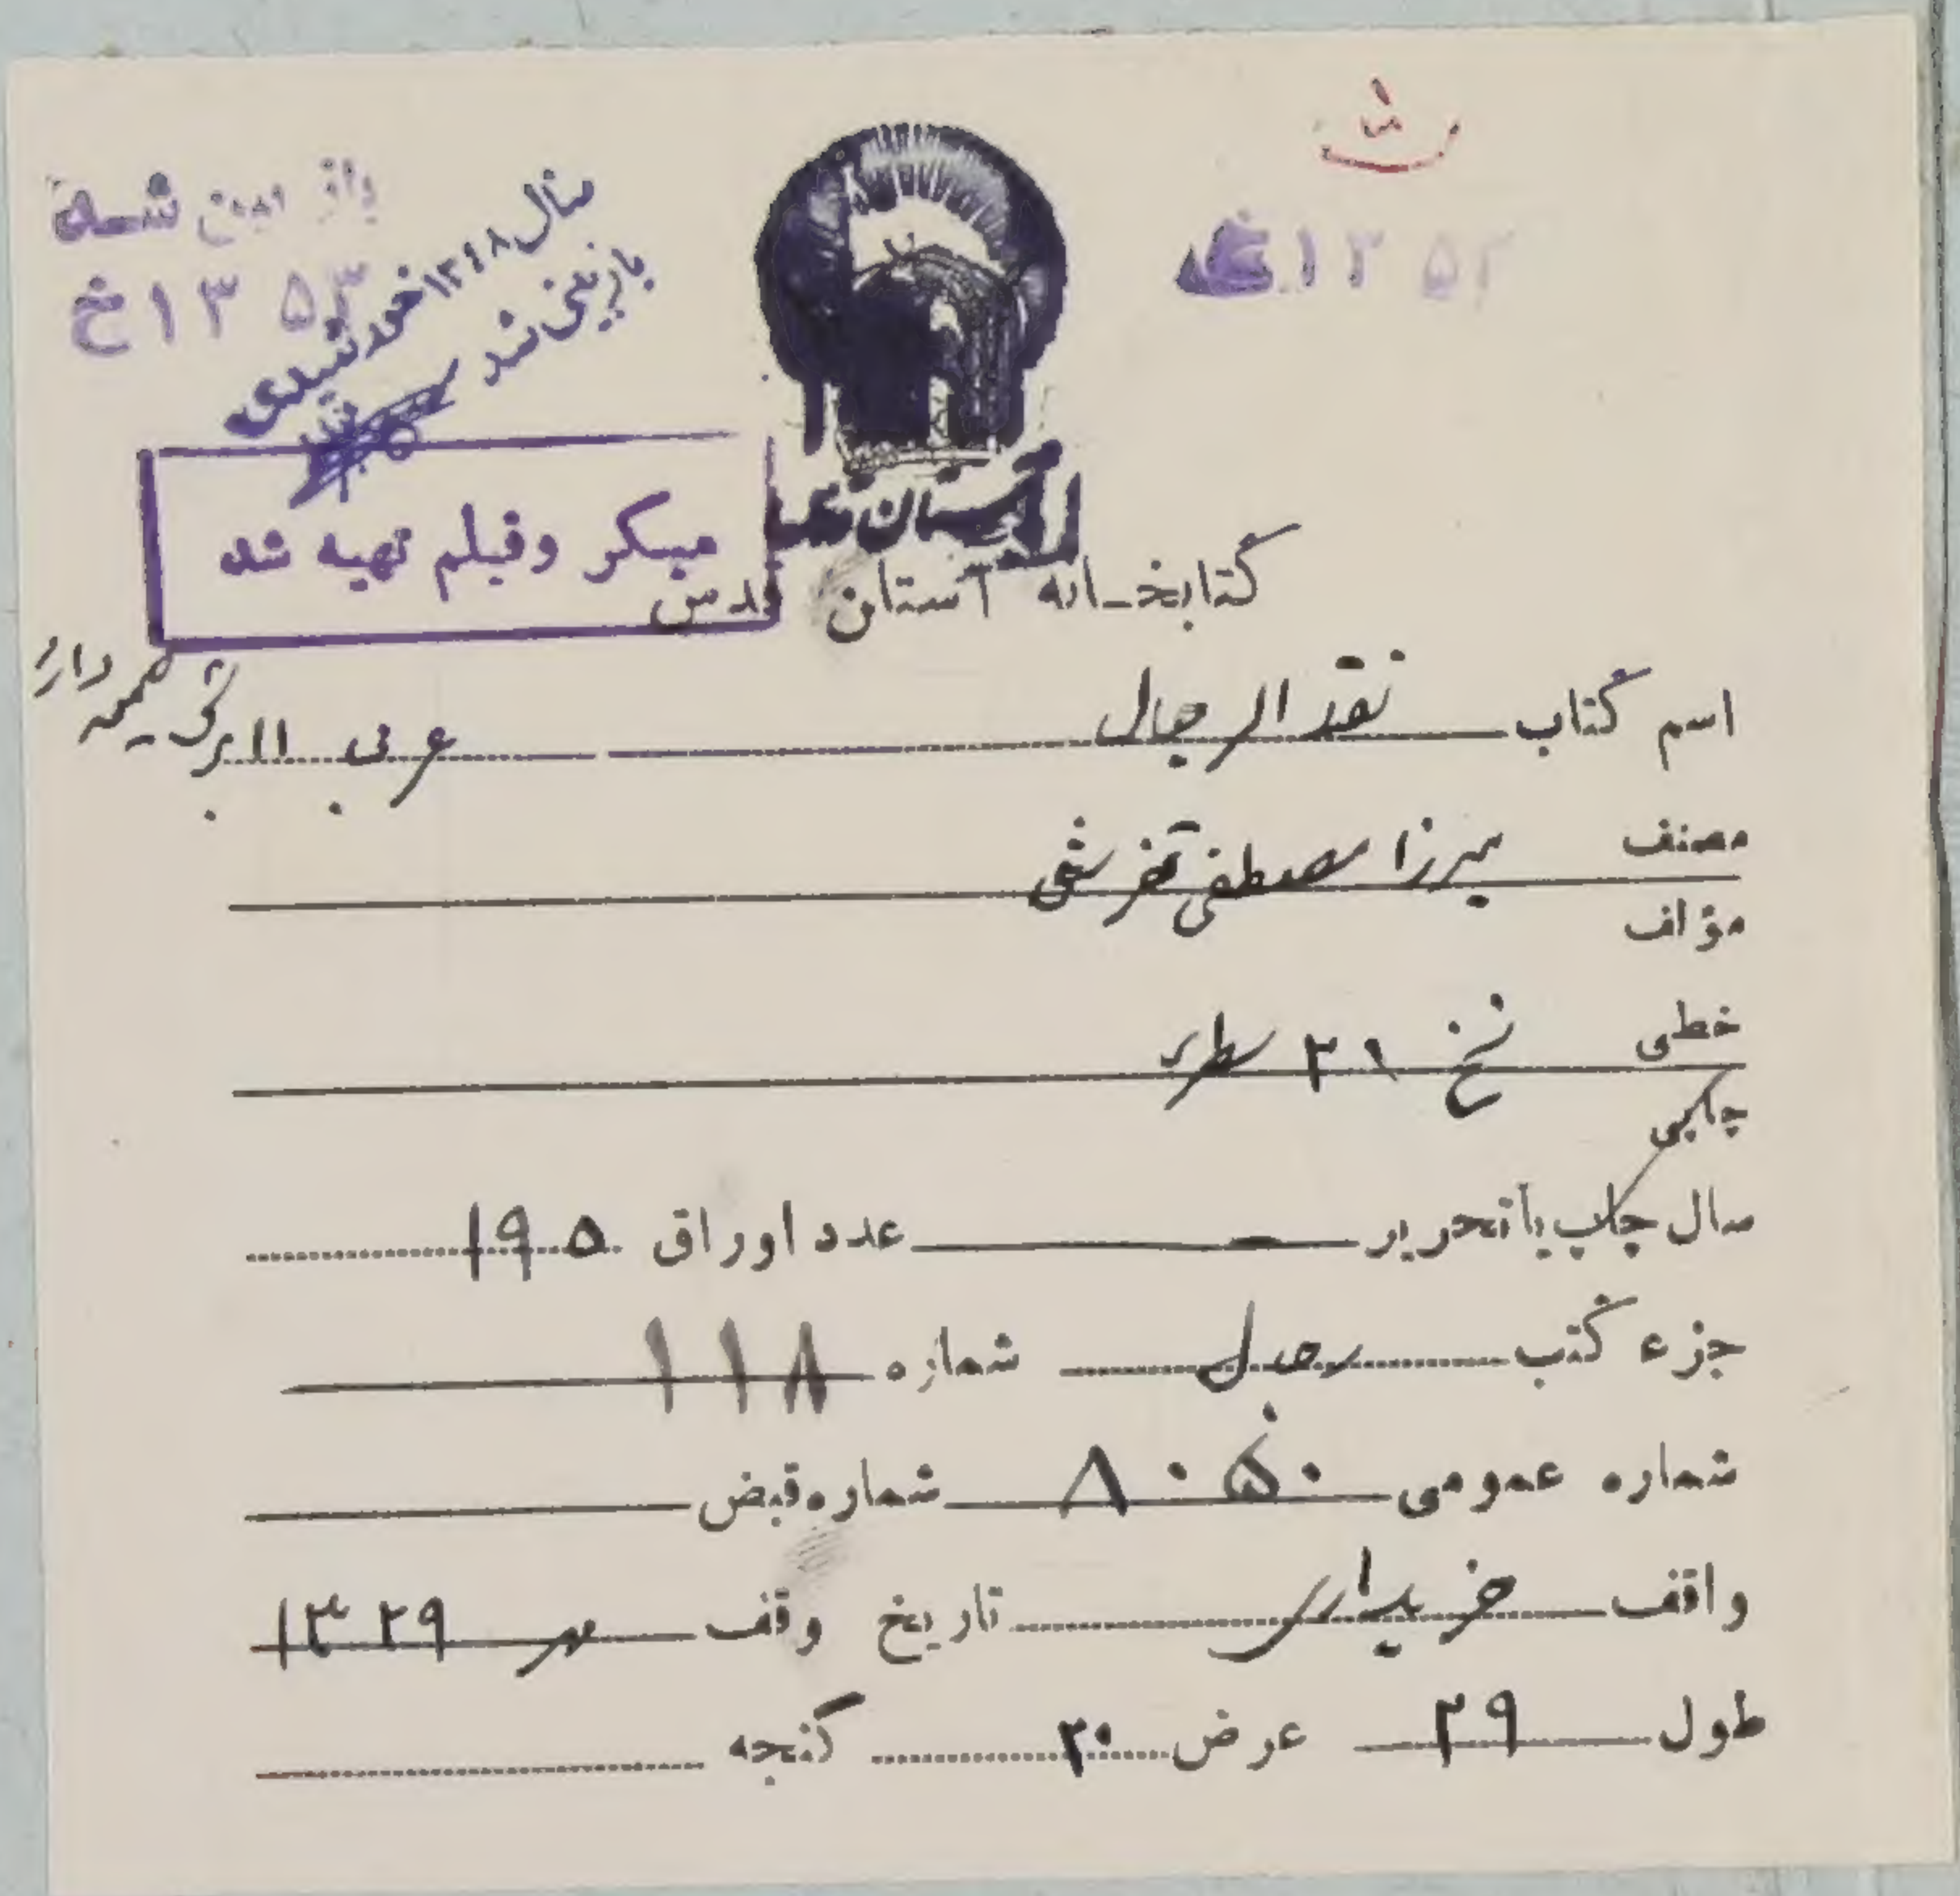 ۱۳۵۳
شده
۱۳۵۳ خ
سال ۱۳٤۸ خورشیدی
بازبینی شد
میکر وفیلم تهیه شد
کتابخانه آستان قدس
اسم کتاب نقد الرجال عربی
مصنف میرزا مصطفی تفرشی
مؤلف
خطی نسخ ۲۱ سطری
چاپی
سال چاپ یا تحریر عدد اوراق ۱۹۵
جزء کتب رجال شماره ۱۱۸
شماره عمومی ۸۰۵۰ شماره قبض
واقف خریداری تاریخ وقف مهر ۱۳۲۹
طول ۲۹ عرض ۲۰ گنجه